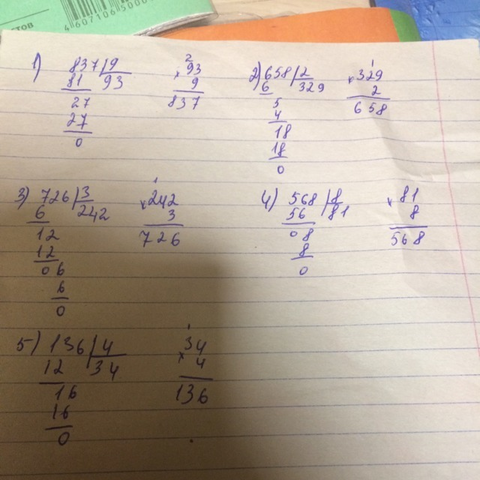 1) 837 | 9
81 93
27
27
0
2
× 93
9
837
2) 658 | 2
6 329
5
4
18
18
0
1
× 329
2
658
3) 726 | 3
6 242
12
12
06
6
0
1
× 242
3
726
4) 568 | 8
56 81
08
8
0
× 81
8
568
5) 136 | 4
12 34
16
16
0
1
× 34
4
136